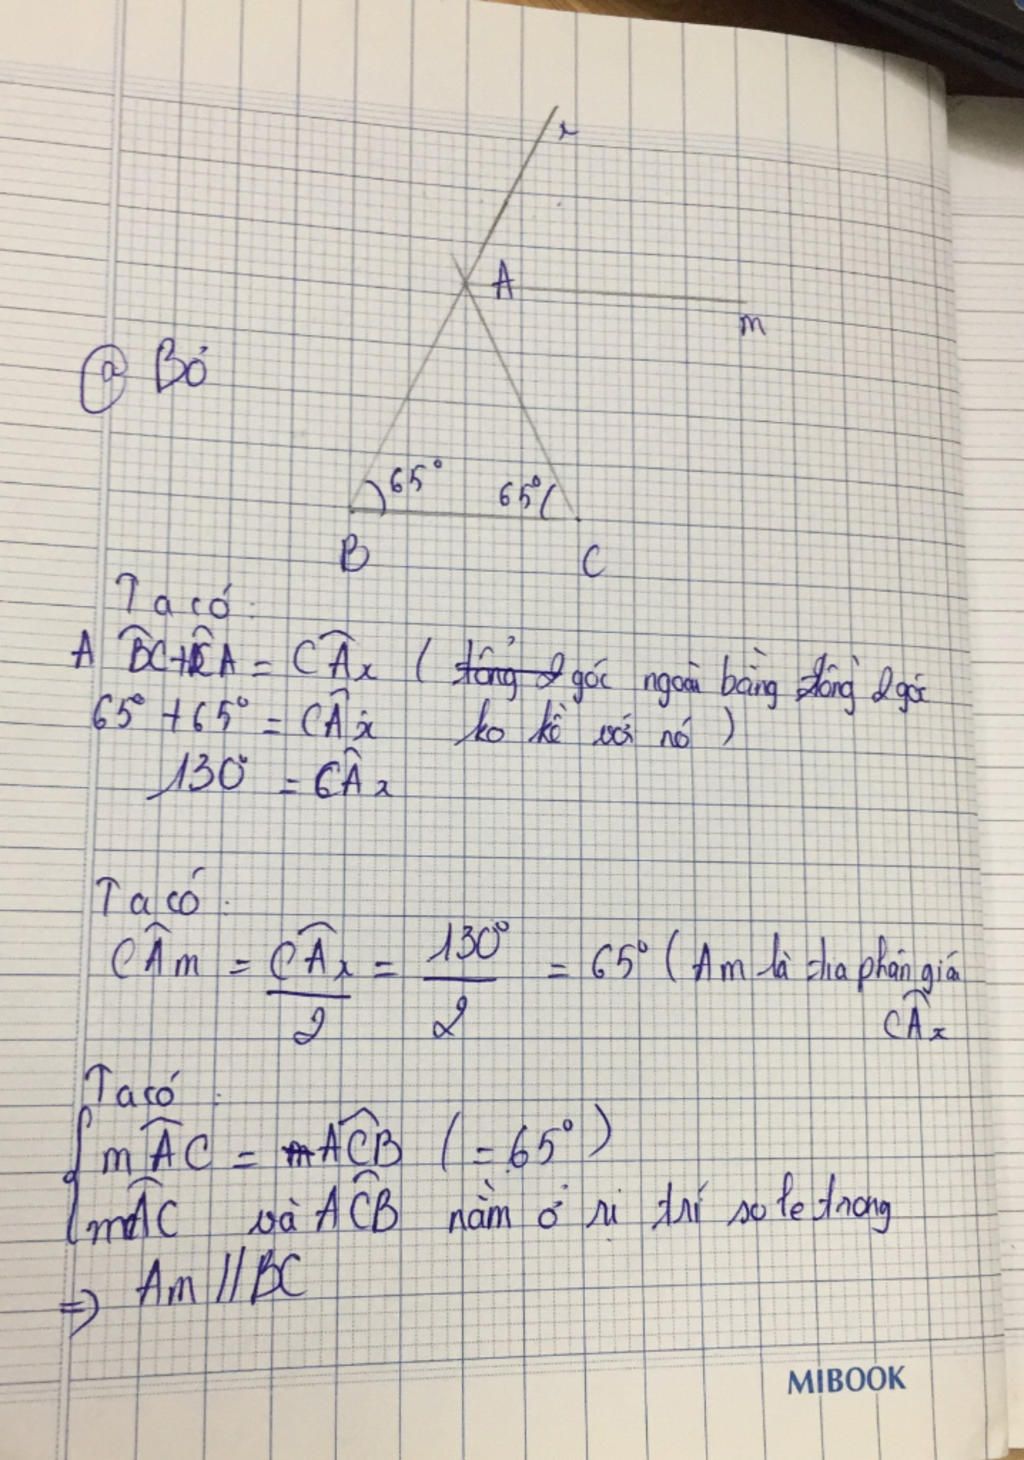 x
A
m
ⓐ Bỏ
65° 65°
B C
Ta có:
A B̂C + ĈA = CÂx ( tổng 2 góc ngoài bằng tổng 2 góc
65° + 65° = CÂx ko kề với nó )
130° = CÂx
Ta có:
CÂm = CÂx/2 = 130°/2 = 65° ( Am là tia phân giá
CÂx
Ta có:
mÂC = AĈB ( = 65° )
mÂC và AĈB nằm ở vị trí so le trong
=> Am // BC
MIBOOK